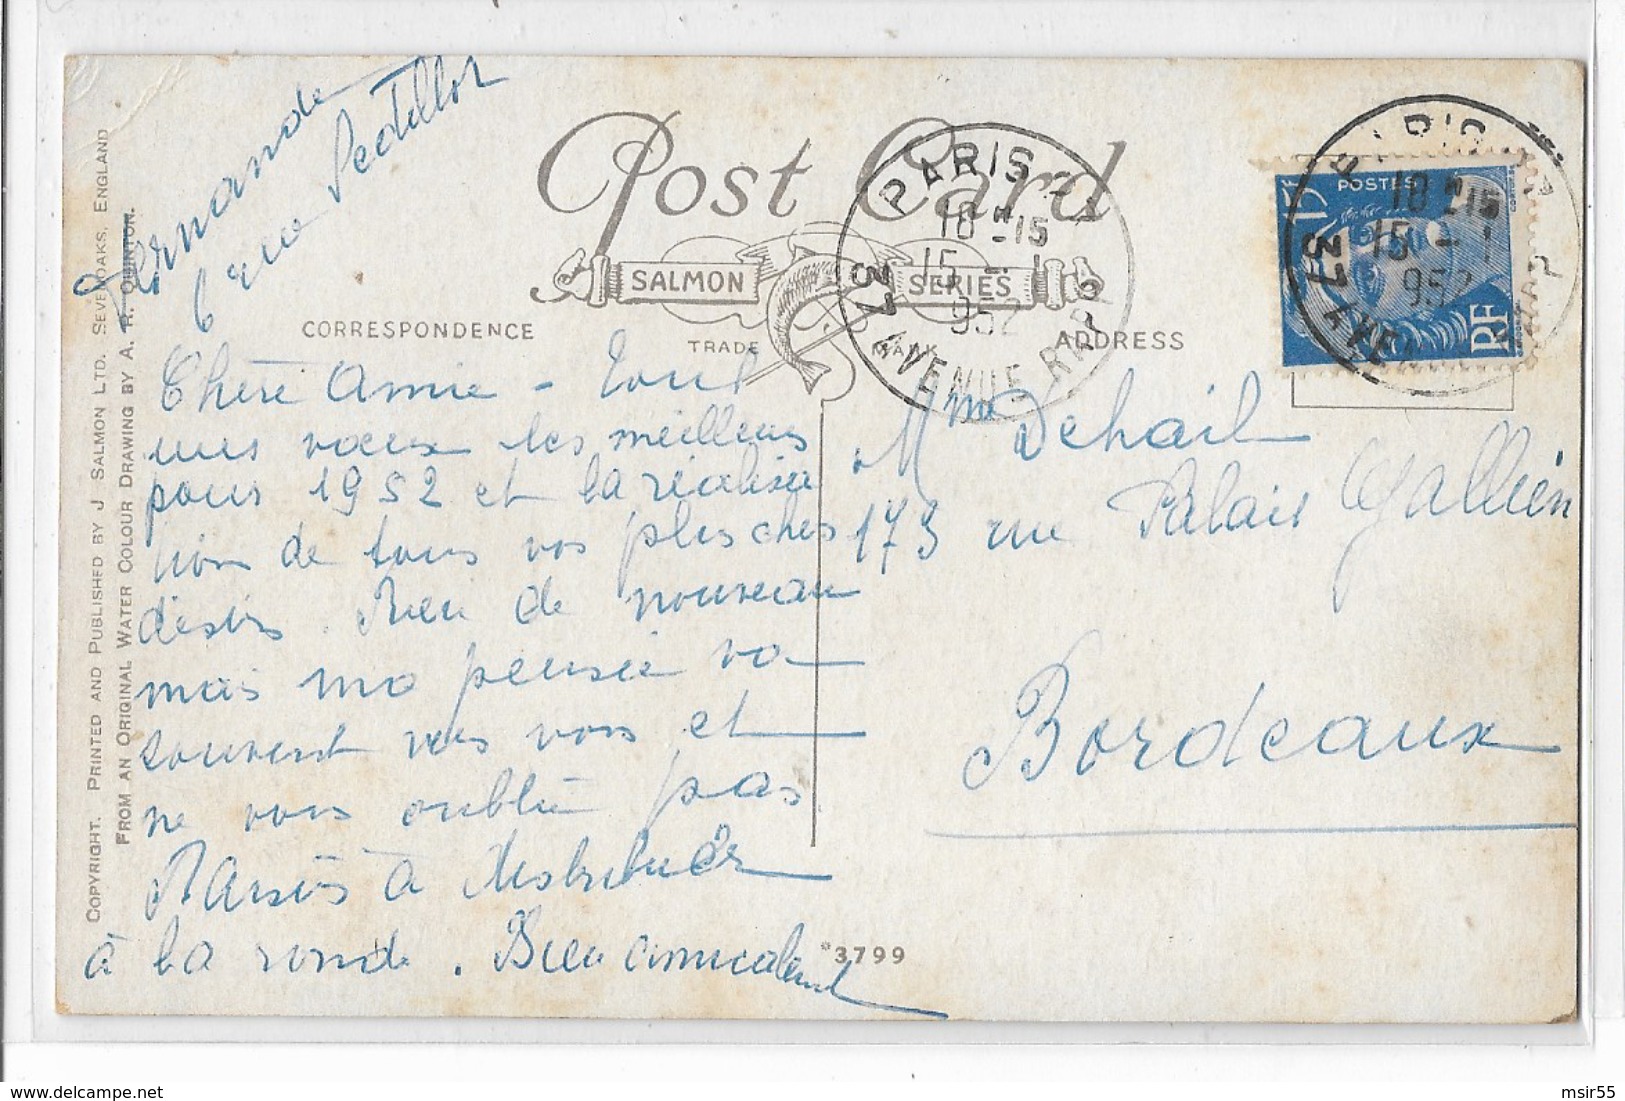 Fernande
6 rue Pectillot
Post Card
SALMON SERIES
TRADE MARK
CORRESPONDENCE
ADDRESS
COPYRIGHT. PRINTED AND PUBLISHED BY J SALMON LTD. SEVENOAKS, ENGLAND
FROM AN ORIGINAL WATER COLOUR DRAWING BY A. R. QUINTON.
Chère Amie - Tout
mes vœux les meilleurs
pour 1952 et la réalisa
tion de tous vos plus chers
désirs. Rien de nouveau
mais ma pensée va
souvent vers vous et
ne vous oublie pas
Baisers à distribuer
à la ronde. Bien amicalement
*3799
Mme Dehail
173 rue Palais Gallien
Bordeaux
PARIS
18 H -15
15 - 1
952
37 AVENUE
PARIS
18 H -15
15 - 1
952
37 AVE
15F
POSTES
RF
msir55